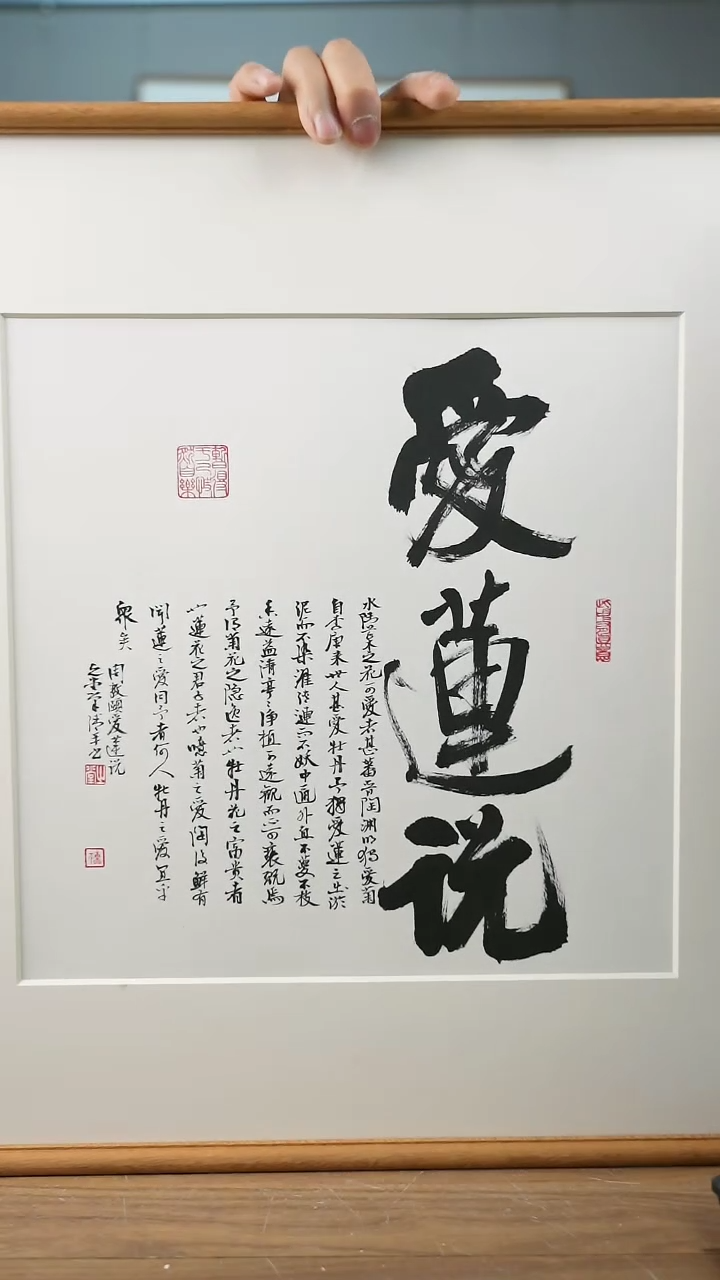 愛蓮说
水陸草木之花可愛者甚蕃晋陶渊明独愛菊
自李唐来世人甚愛牡丹予獨愛蓮之出淤
泥而不染濯清漣而不妖中通外直不蔓不枝
香遠益清亭亭净植可遠觀而不可褻玩焉
予谓菊花之隐逸者也牡丹花之富貴者
也蓮花之君子者也噫菊之愛陶後鮮有
闻蓮之愛同予者何人牡丹之愛宜乎
眾矣
周敦頤愛蓮说